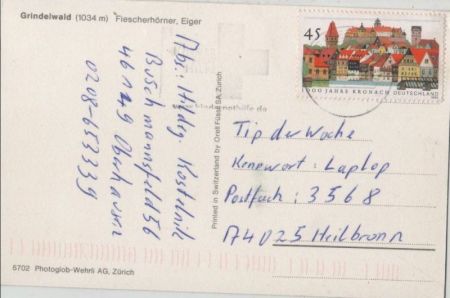 Grindelwald (1034 m) Fiescherhörner, Eiger
Abs.: Hildeg. Kostelnik
Buschmannsfeld 56
46149 Oberhausen
0208-653339
Printed in Switzerland by Orell Füssli SA, Zürich
45
1000 JAHRE KRONACH DEUTSCHLAND
Tip der Woche
Kennwort: Laptop
Postfach: 3568
74025 Heilbronn
6702 Photoglob-Wehrli AG, Zürich